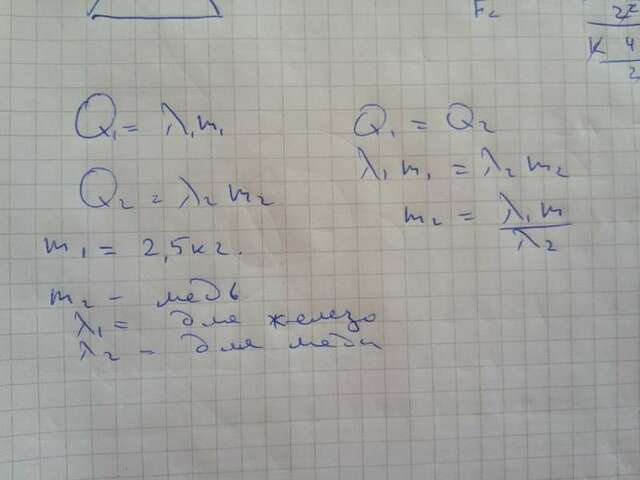 F₂
27
4
2
Q₁ = λ₁m₁
Q₂ = λ₂ m₂
m₁ = 2,5 кг.
m₂ - медь
λ₁ = для железо
λ₂ - для меди
Q₁ = Q₂
λ₁ m₁ = λ₂ m₂
m₂ = λ₁ m / λ₂